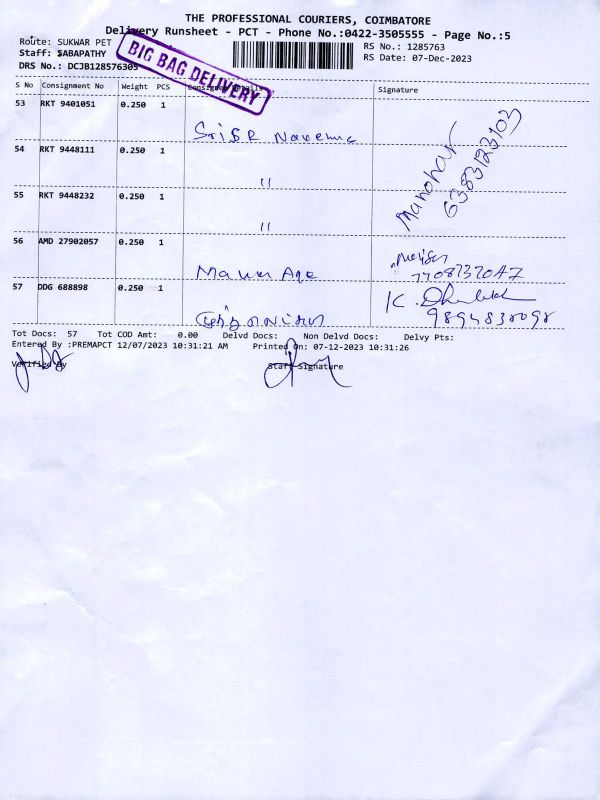 THE PROFESSIONAL COURIERS, COIMBATORE
Delivery Runsheet - PCT - Phone No.:0422-3505555 - Page No.:5
Route: SUKWAR PET
RS No.: 1285763
Staff: SABAPATHY
RS Date: 07-Dec-2023
DRS No.: DCJB128576305
BIG BAG DELIVERY
S No Consignment No Weight PCS Consignee Details Signature
53 RKT 9401051 0.250 1
Manohar
6383123103
54 RKT 9448111 0.250 1
"
55 RKT 9448232 0.250 1
"
56 AMD 27902057 0.250 1
57 DDG 688898 0.250 1
K.
Tot Docs: 57 Tot COD Amt: 0.00 Delvd Docs: Non Delvd Docs: Delvy Pts:
Entered By :PREMAPCT 12/07/2023 10:31:21 AM Printed On: 07-12-2023 10:31:26
Verified By Staff Signature